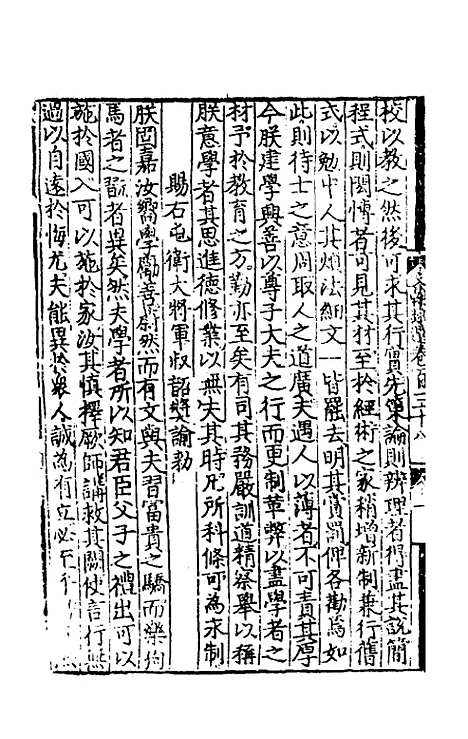 校以教之然後可求其行實先策論則辨理者得盡其說簡
程式則閎博者可見其材至於經術之家稍增新制兼行舊
式以勉中人其煩法細文一皆罷去明其賞罰俾各勸焉如
此則待士之意周取人之道廣夫遇人以薄者不可責其厚
今朕建學興善以尊子大夫之行而更制革弊以盡學者之
材予於教育之方勤亦至矣有司其務嚴訓道精察舉以稱
朕意學者其思進德修業以無失其時凡所科條可為永制
賜右屯衛大將軍叔韶獎諭勅
朕固嘉汝嚮學勵善蔚然而有文與夫習富貴之驕而樂狗
馬者之翫者異矣然夫學者所以知君臣父子之禮出可以
施於國入可以施於家汝其慎擇厥師講救其闕使言行無
過以自遠於悔尤夫能異於眾人誠為有立必至於